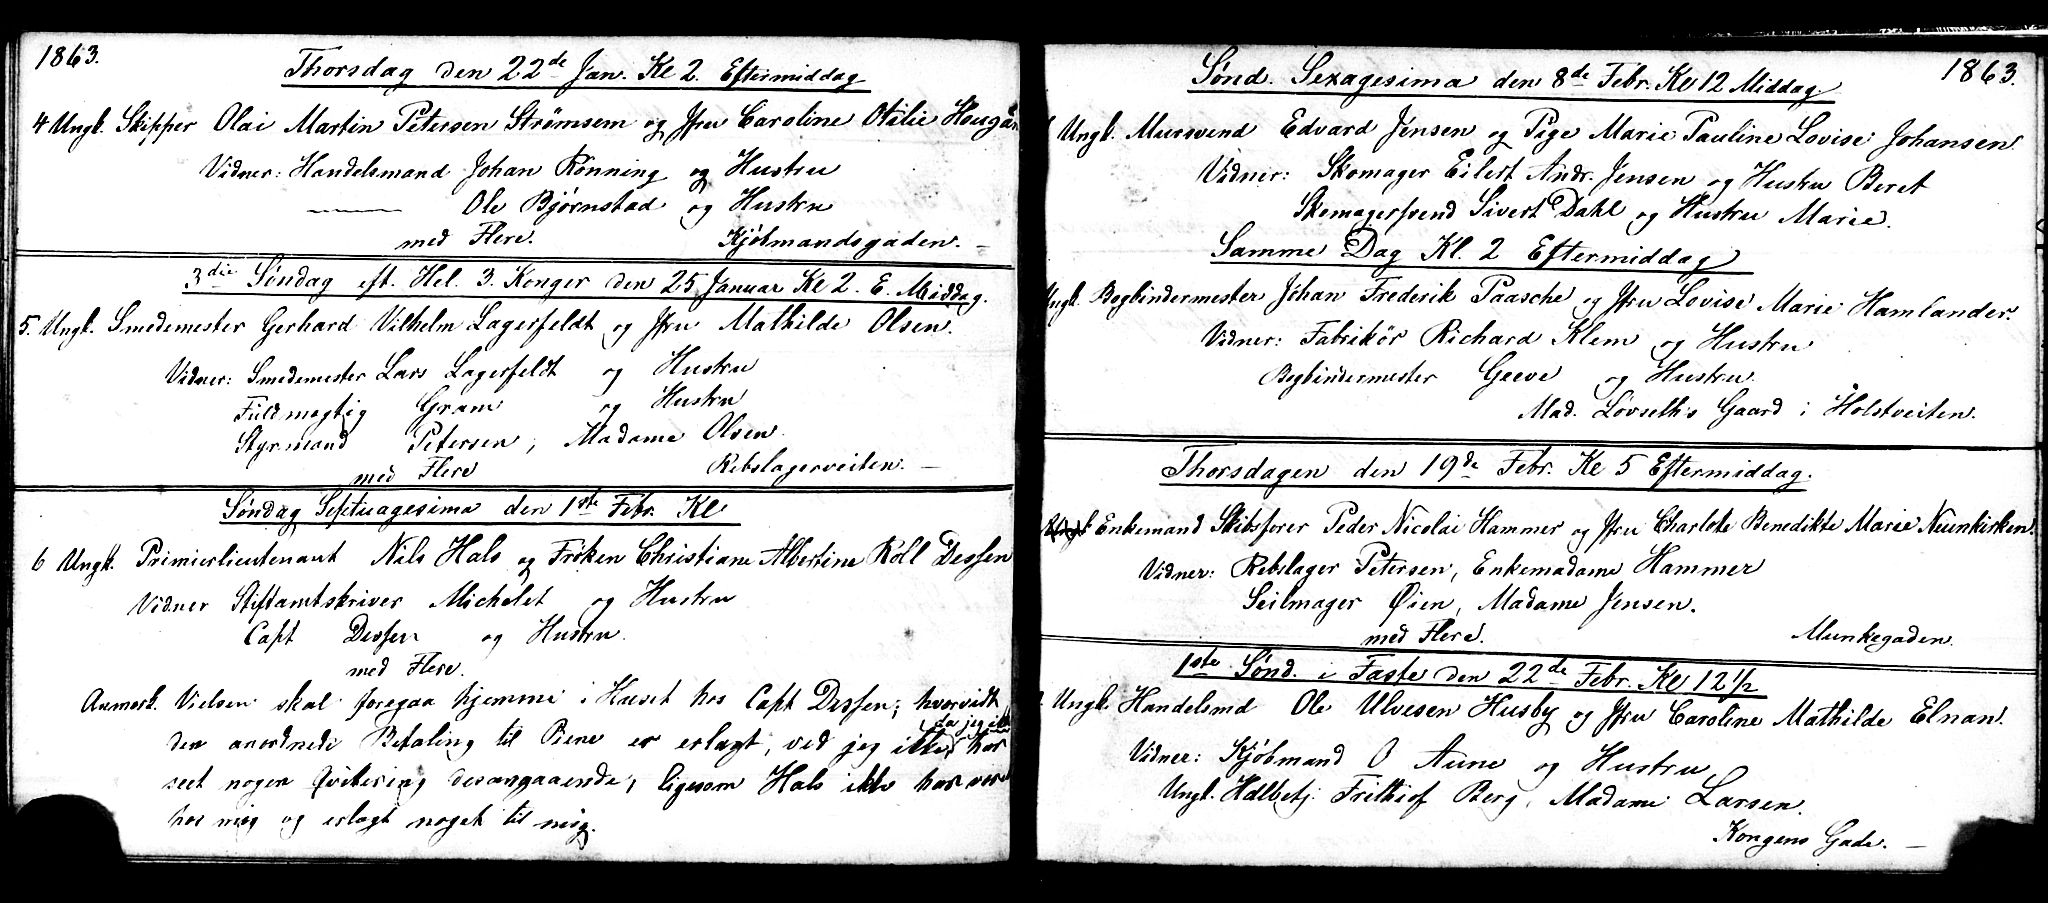 1863.
Thorsdag den 22de Jan. Kl 2. Eftermiddag
4 Ungk. Skipper Olai Martin Petersen Strömsem og Jfru Caroline Otilie Hougan
Vidner: Handelsmand Johan Rönning og Hustru
——— Ole Bjørnstad og Hustru
med Flere. Kjöbmandsgaden. —
3die Söndag eft. Hel. 3. Konger den 25 Januar Kl 2. E. Middag.
5. Ungk. Smedemester Gerhard Vilhelm Lagerfeldt og Jfru Mathilde Olsen.
Vidner: Smedemester Lars Lagerfeldt og Hustru
Fuldmegtig Gram og Hustru
Styrmand Petersen, Madame Olsen.
med Flere Rebslagerveiten. —
Söndag Septuagesima den 1ste Febr. Kl
6 Ungk. Primierlieutenant Nils Hals og Fröken Christiane Albertine Roll Dessen
Vidner Stiftamtskriver Michelet og Hustru
Capt Dessen og Hustru.
med Flere.
Anmerk. Vielsen skal foregaa hjemme i Huset hos Capt Dessen; hvorvidt
den anordnede Betaling til Byen er erlagt, ved jeg ikke, da jeg ikke har
seet nogen Qvitering desangaaende, ligesom Hals ikke har været
hos mig og erlagt noget til mig.
1863.
Sønd. Sexagesima den 8de Febr. Kl 12 Middag
Ungk. Mursvend Edvard Jensen og Pige Marie Pauline Lovise Johansen.
Vidner: Skomager Eilert Andr. Jensen og Hustru Beret
Skomagersvend Sivert Dahl og Hustru Marie.
Samme Dag Kl. 2 Eftermiddag
Ungk. Bogbindermester Johan Frederik Paasche og Jfru Lovise Marie Hamlander.
Vidner: Fabrikör Richard Klem og Hustru
Bogbindermester Greve og Hustru.
Mad. Lövseth's Gaard i Holstveiten.
Thorsdagen den 19de Febr. Kl 5 Eftermiddag.
Enkemand Skibsförer Peder Nicolai Hammer og Jfru Charlotte Benedikte Marie Neunkirken.
Vidner: Rebslager Petersen, Enkemadame Hammer
Seilmager Øien, Madame Jensen.
med Flere. Munkegaden.
1ste Sønd. i Faste den 22de Febr. Kl 12½
Ungk. Handelsmd Ole Ulvesen Husby og Jfru Caroline Mathilde Elnan.
Vidner: Kjöbmand O Aune og Hustru
Ungk. Hdlbetj. Frithiof Berg, Madame Larsen.
Kongens Gade. —